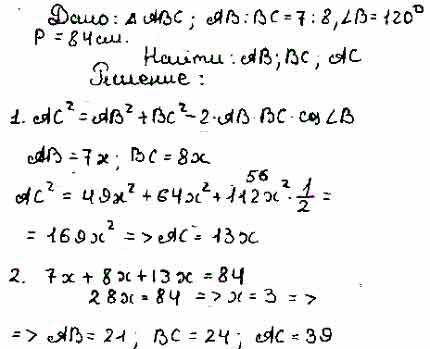 Дано: △ ABC; AB:BC=7:8, ∠B=120°
P = 84 см.
Найти: AB; BC; AC
Решение:
1. AC² = AB² + BC² - 2·AB·BC·cos∠B
AB = 7x; BC = 8x
56
AC² = 49x² + 64x² + 112x² · 1/2 =
= 169x² => AC = 13x
2. 7x + 8x + 13x = 84
28x = 84 => x = 3 =>
=> AB = 21; BC = 24; AC = 39